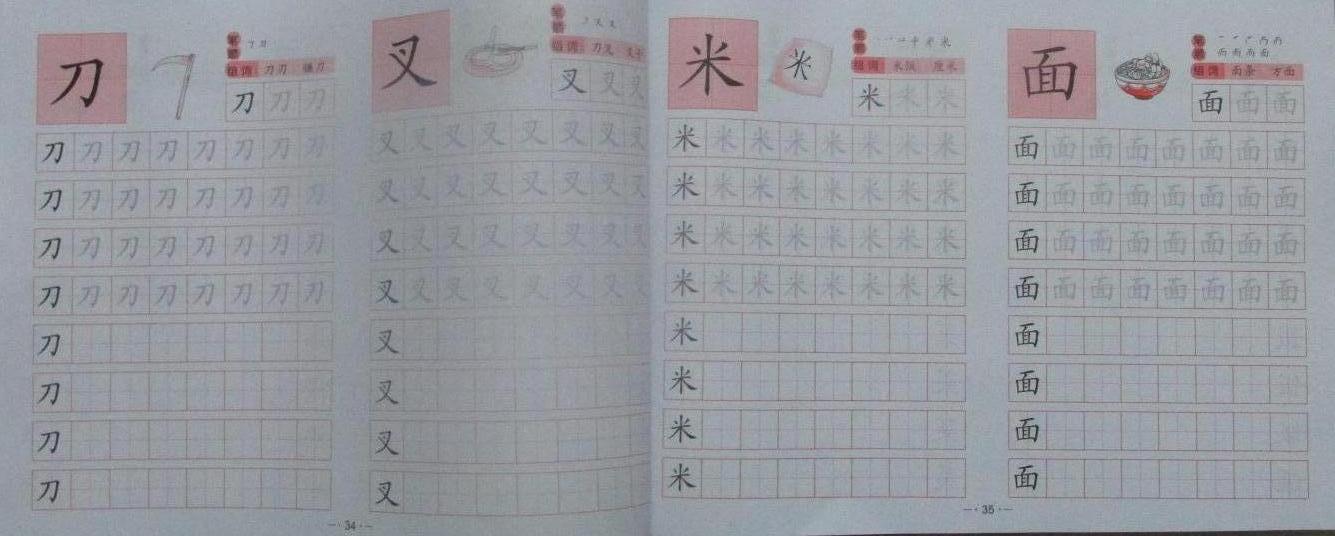 刀
笔顺
组词 刀刃 镰刀
刀 刀 刀
刀 刀 刀 刀 刀 刀 刀 刀
刀 刀 刀 刀 刀 刀 刀 刀
刀 刀 刀 刀 刀 刀 刀 刀
刀 刀 刀 刀 刀 刀 刀 刀
刀
刀
刀
刀
叉
笔顺
组词 刀叉
叉 叉 叉
叉 叉 叉 叉 叉 叉 叉 叉
叉 叉 叉 叉 叉 叉 叉 叉
叉 叉 叉 叉 叉 叉 叉 叉
叉 叉 叉 叉 叉 叉 叉 叉
叉
叉
叉
叉
34
米
米
笔顺
组词 米饭 厘米
米 米 米
米 米 米 米 米 米 米 米
米 米 米 米 米 米 米 米
米 米 米 米 米 米 米 米
米 米 米 米 米 米 米 米
米
米
米
米
面
笔顺
组词 面条 方面
面 面 面
面 面 面 面 面 面 面 面
面 面 面 面 面 面 面 面
面 面 面 面 面 面 面 面
面 面 面 面 面 面 面 面
面
面
面
面
35